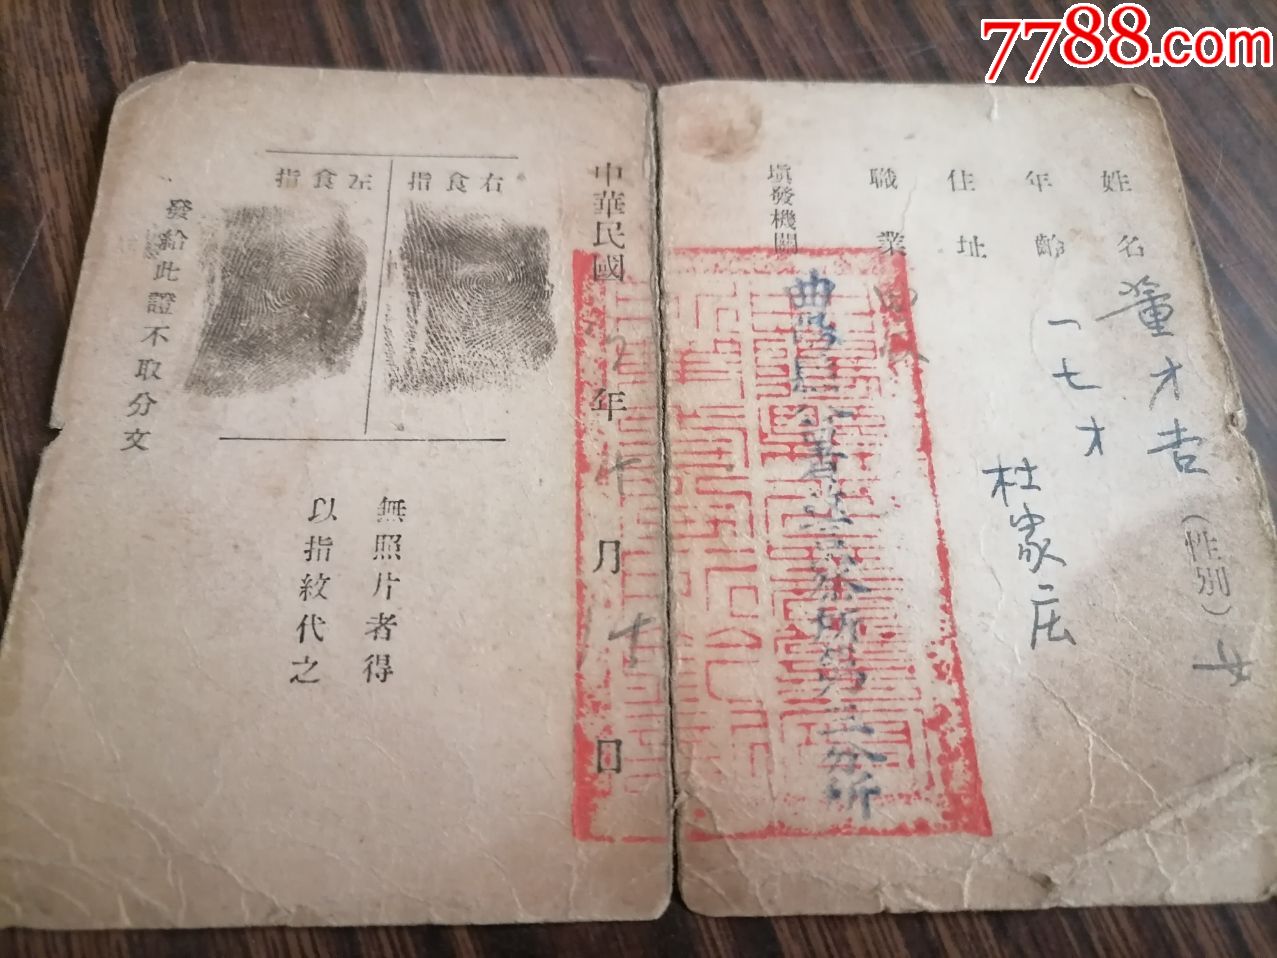 7788.com
姓名 董才吉 (性別) 女
年齡 一七才
住址 杜家庄
職業
填發機關 曲陽縣公署警察所第三分所
中華民國 年 十月 十日
右食指
左食指
無照片者得
以指紋代之
發給此證不取分文